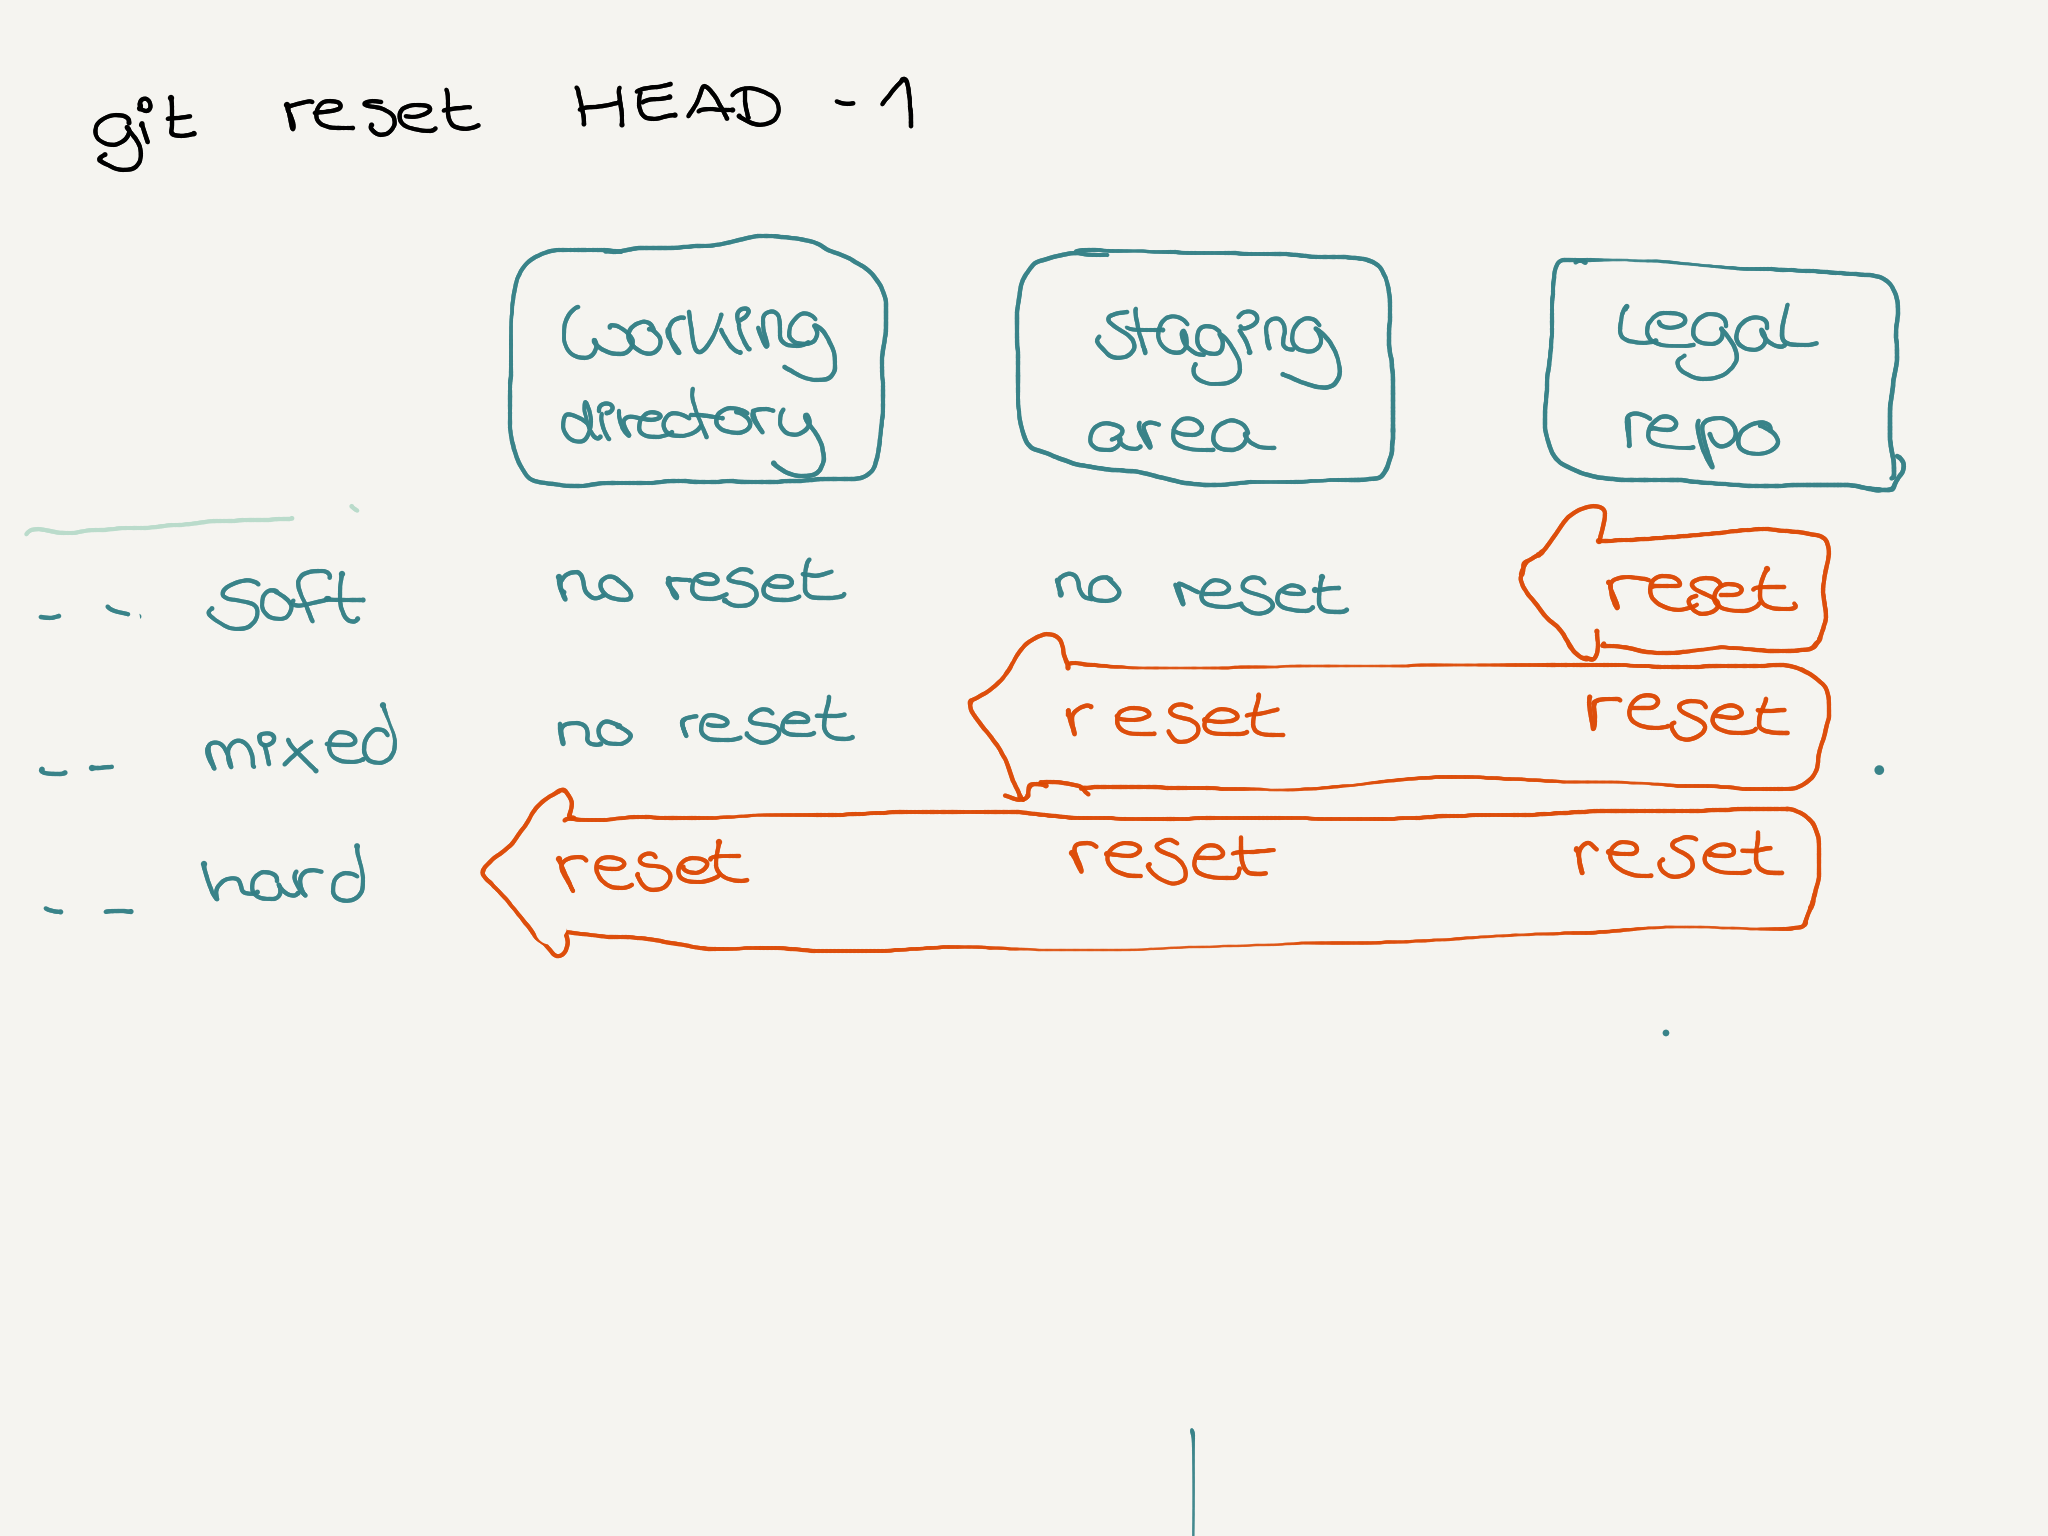 git reset HEAD -1
working directory
staging area
Legal repo
-- soft no reset no reset reset
-- mixed no reset reset reset
-- hard reset reset reset